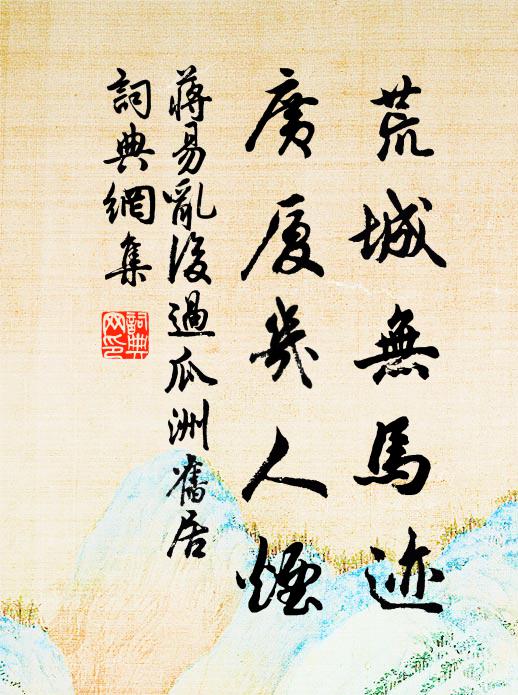 荒城無馬迹
廣厦幾人煙
蔣易亂後過瓜洲舊居
詞典網集
詞典網印